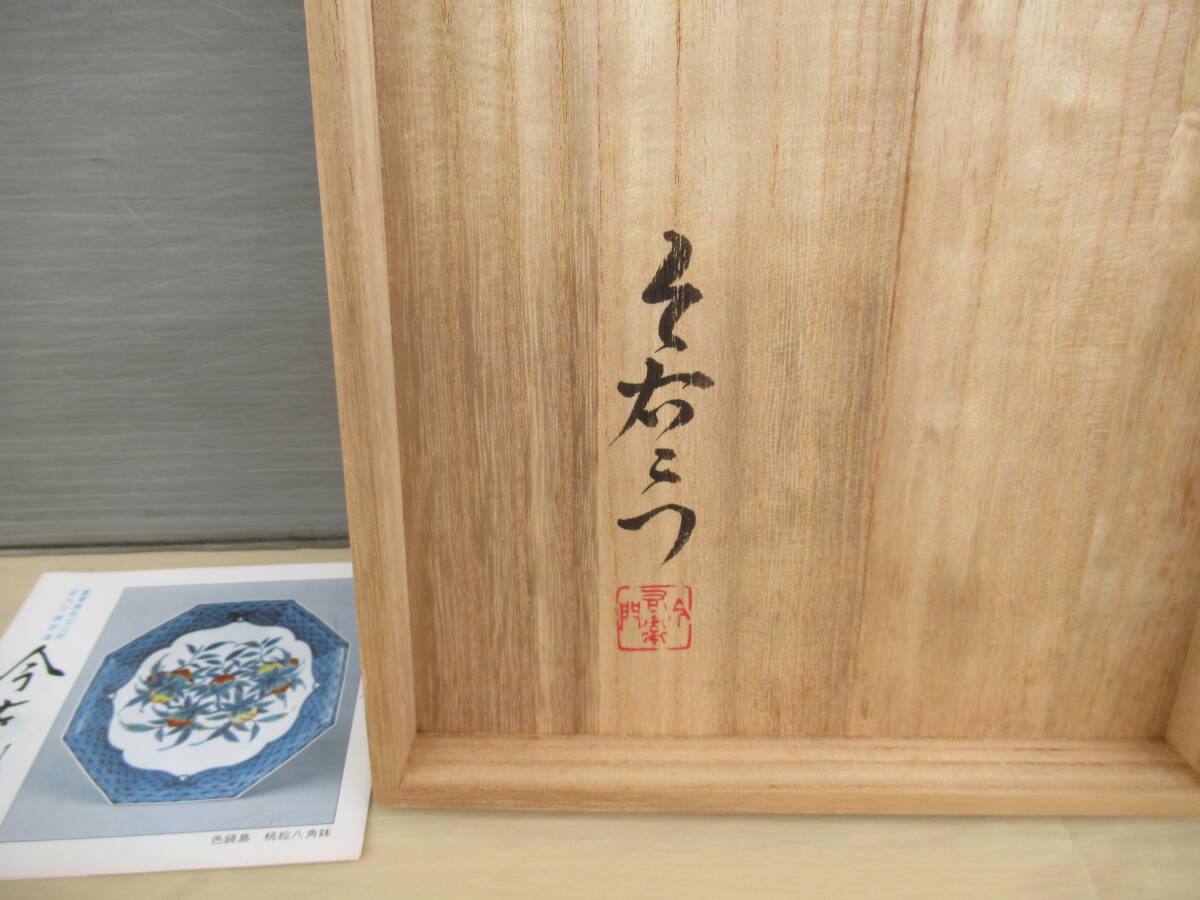 今右ヱ门
今右衛門
今右
色鍋島 桃絵八角鉢